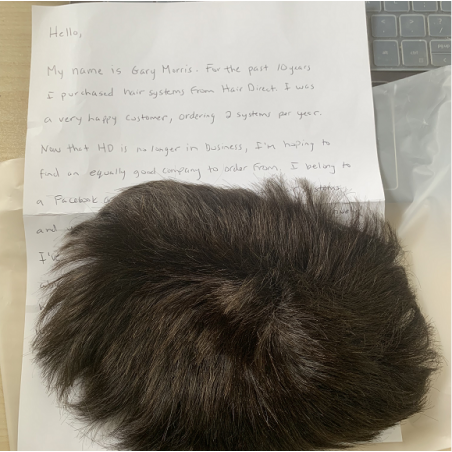 Hello,
My name is Gary Morris. For the past 10 years
I purchased hair systems from Hair Direct. I was
a very happy customer, ordering 2 systems per year.
Now that HD is no longer in business, I'm hoping to
find an equally good company to order from. I belong to
a Facebook
and
I've